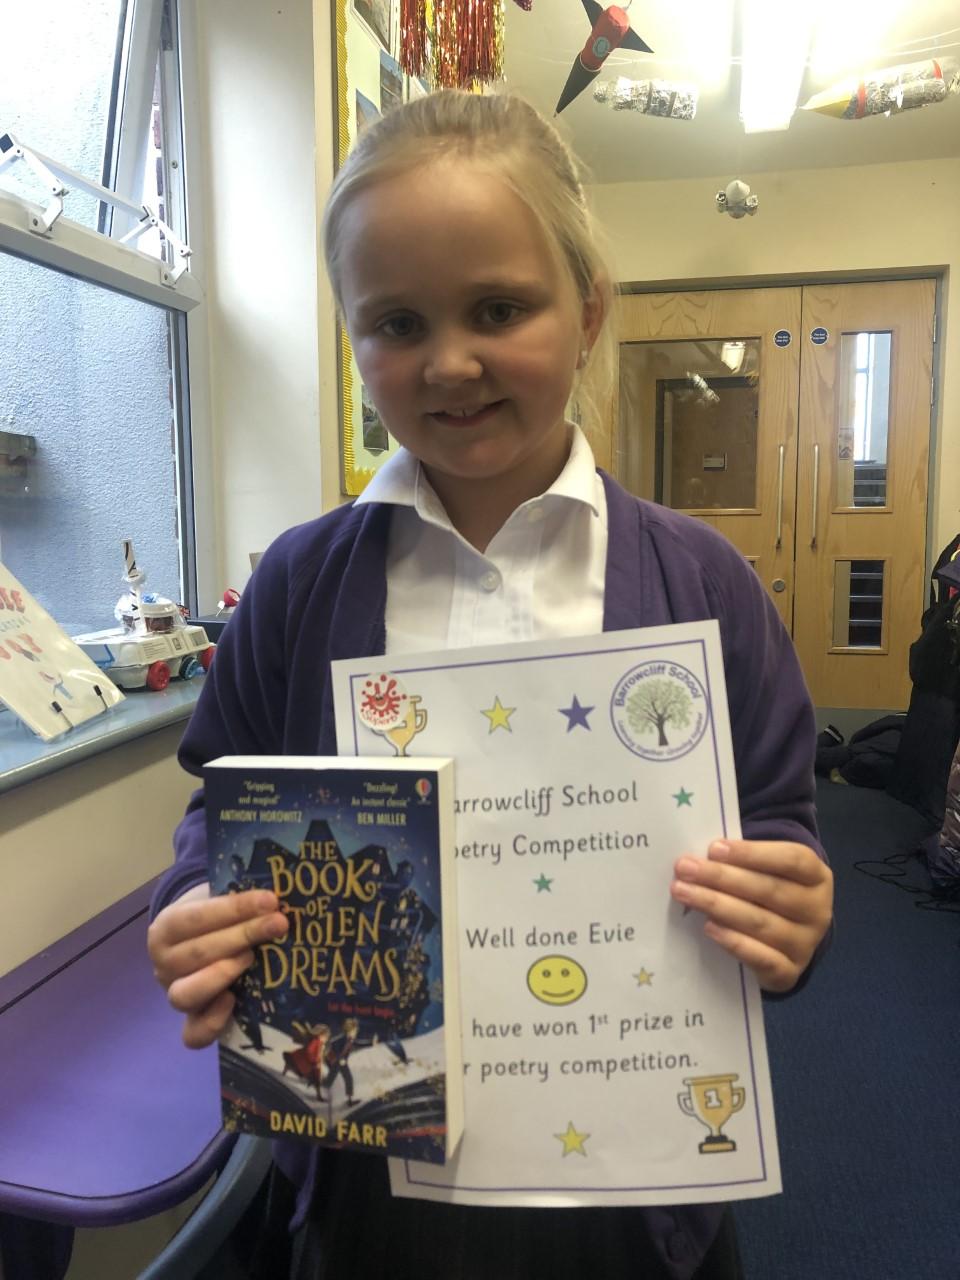 Superb
Barrowcliff School
Learning together Growing together
arrowcliff School
etry Competition
Well done Evie
have won 1st prize in
r poetry competition.
1
"Gripping
and magical"
ANTHONY HOROWITZ
"Dazzling!
An instant classic"
BEN MILLER
THE
BOOK
OF
STOLEN
DREAMS
Let the hunt begin
DAVID FARR